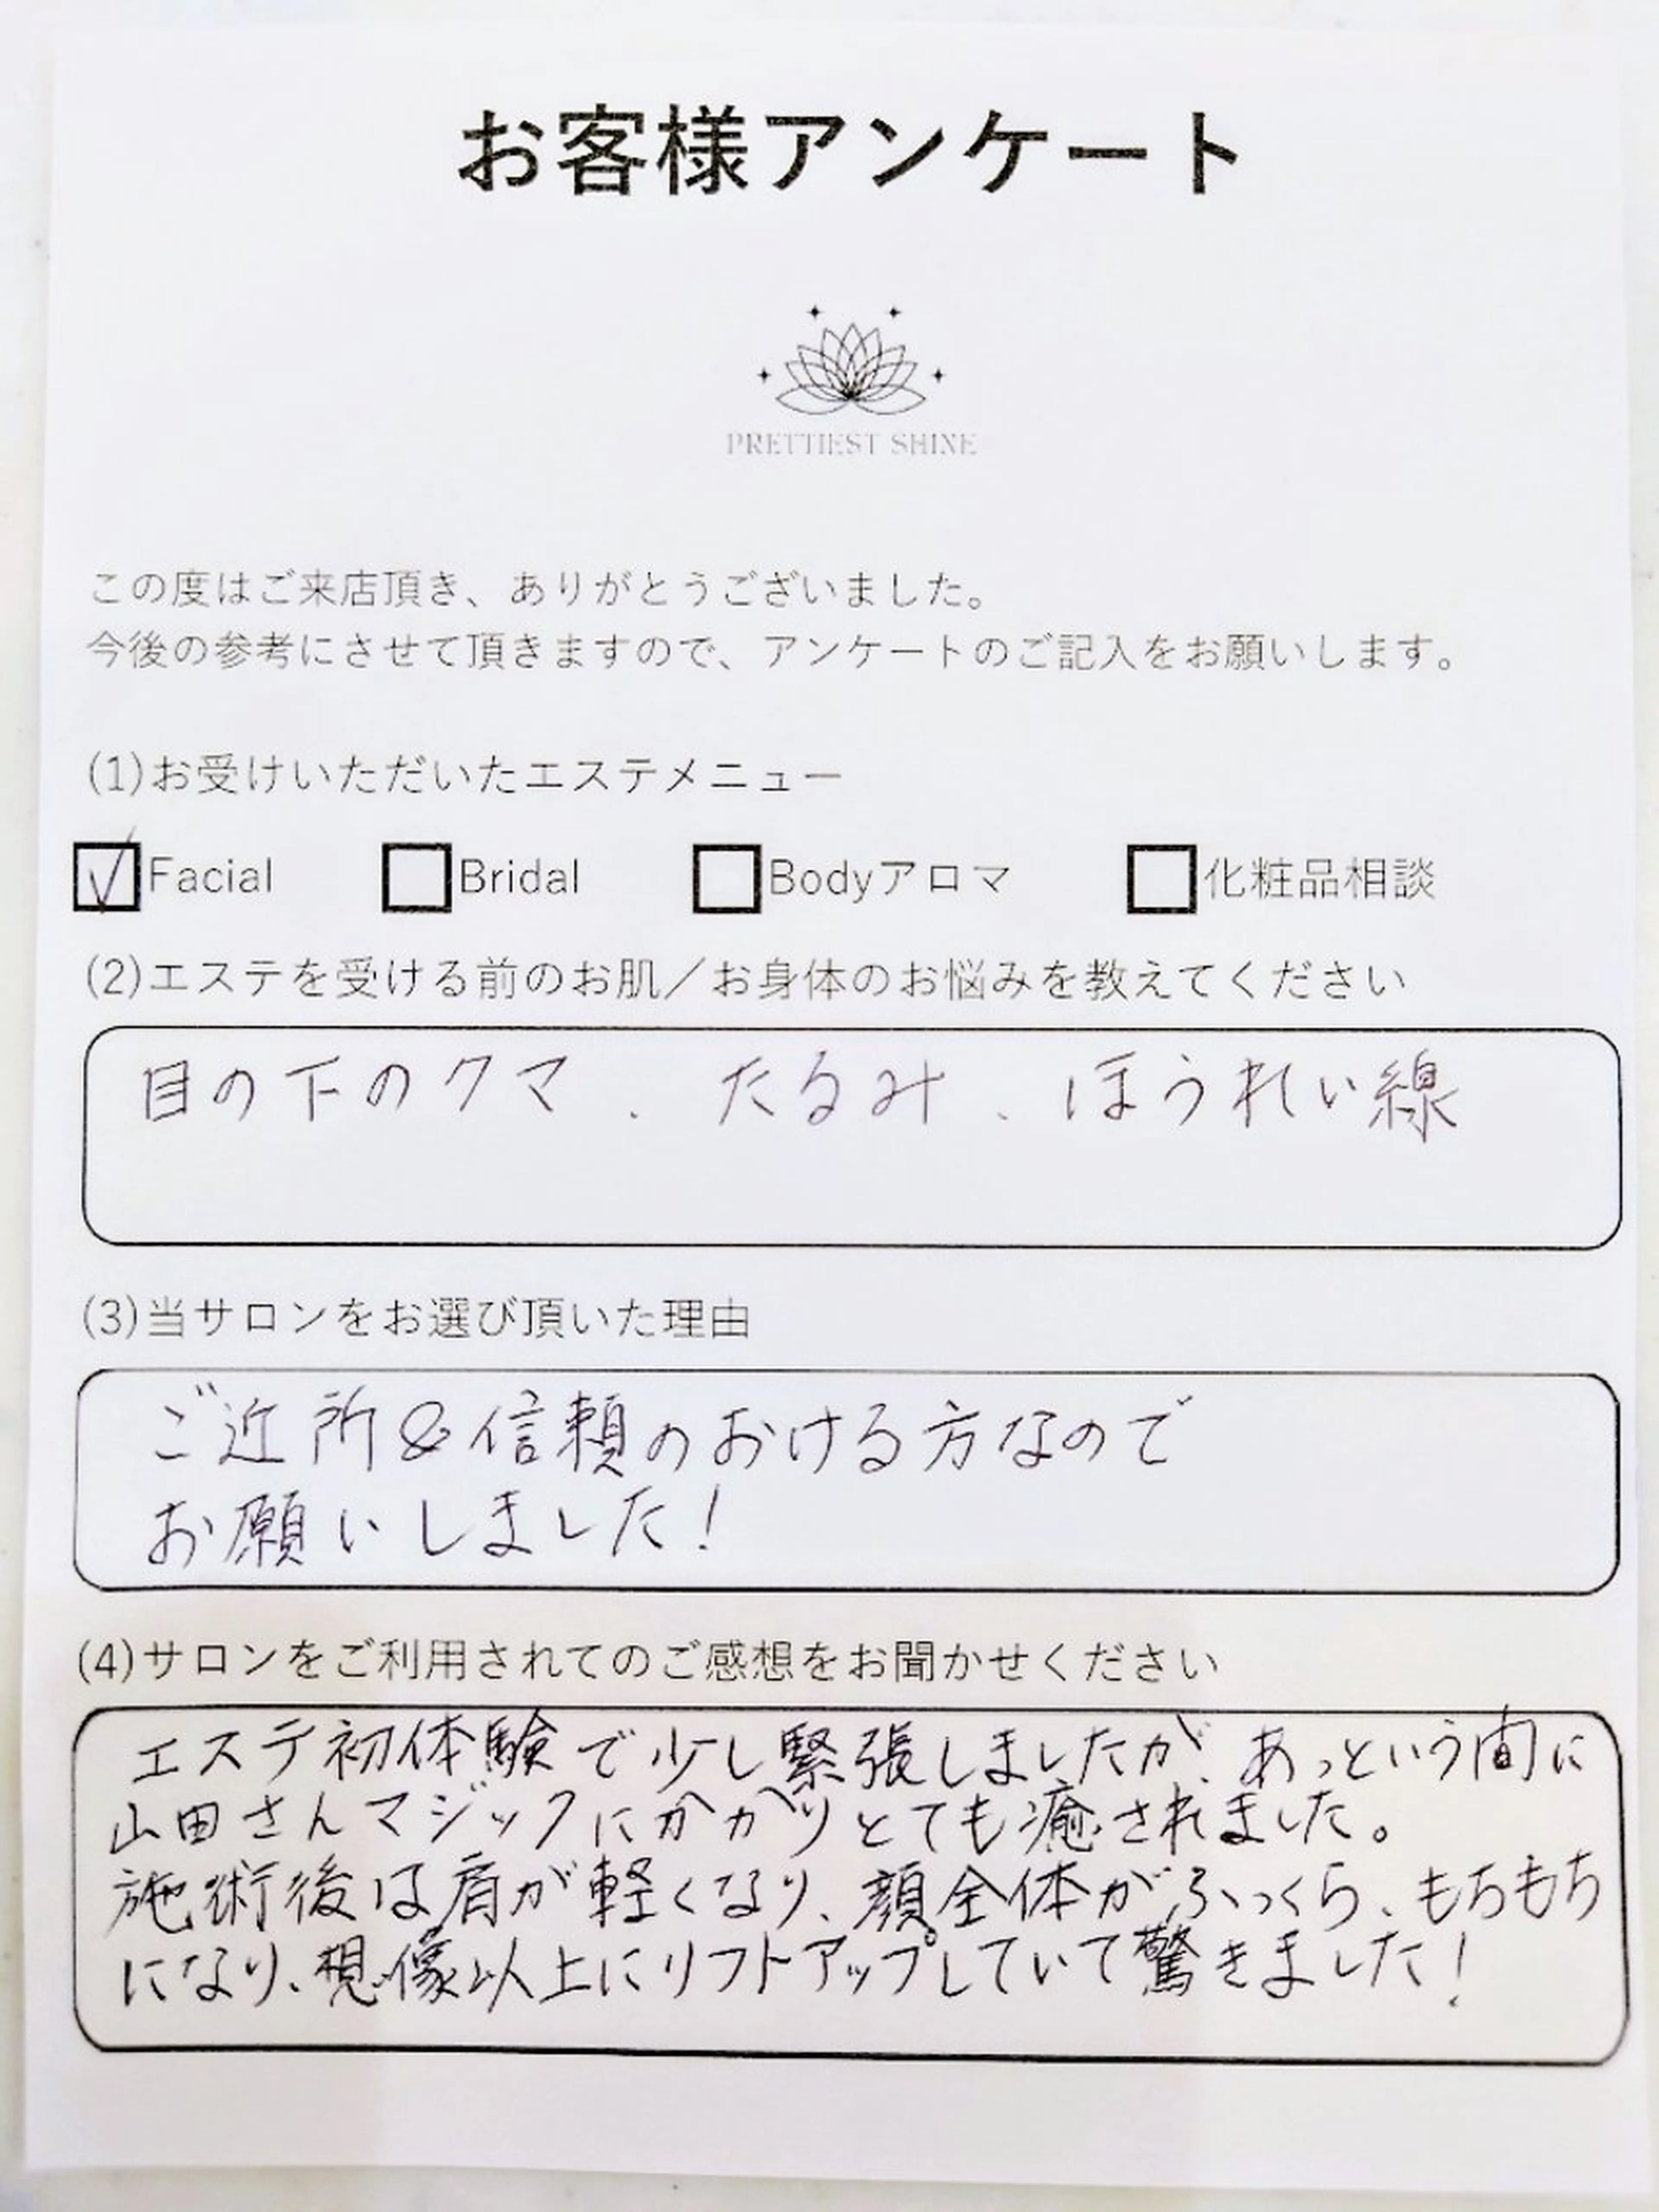 お客様アンケート
PRETTIEST SHINE
この度はご来店頂き、ありがとうございました。
今後の参考にさせて頂きますので、アンケートのご記入をお願いします。
(1)お受けいただいたエステメニュー
☑Facial □Bridal □Bodyアロマ □化粧品相談
(2)エステを受ける前のお肌／お身体のお悩みを教えてください
目の下のクマ、たるみ、ほうれい線
(3)当サロンをお選び頂いた理由
ご近所&信頼のおける方なので
お願いしました！
(4)サロンをご利用されてのご感想をお聞かせください
エステ初体験で少し緊張しましたが、あっという間に
山田さんマジックにかかりとても癒されました。
施術後は肩が軽くなり、顔全体がふっくら、もちもち
になり、想像以上にリフトアップしていて驚きました！